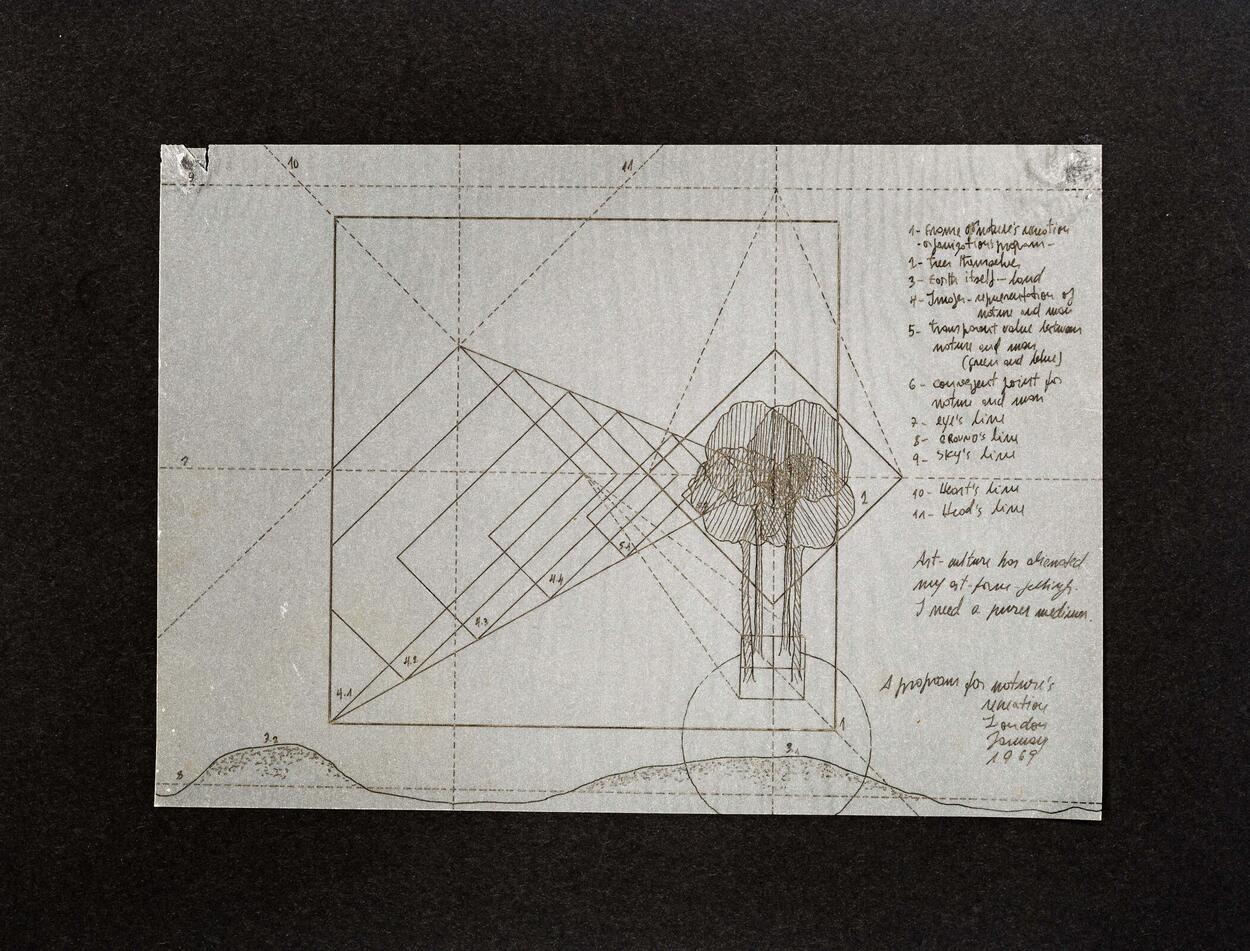 10
11
9
7
2
5.1
4.4
4.3
4.2
4.1
1
3.2
3.1
8
1- Frame of nature's
- organization's program-
2- trees themselves
3- Earth itself - land
4- Image- representation of
nature and man
5- transparent value between
nature and man
(green and blue)
6- convergent point for
nature and man
7- eye's line
8- GROUND's line
9- Sky's line
10- Heart's line
11- Head's line
Art-culture has alienated
my art-forme-feelings.
I need a purer medium.
A program for nature's
London
January
1969